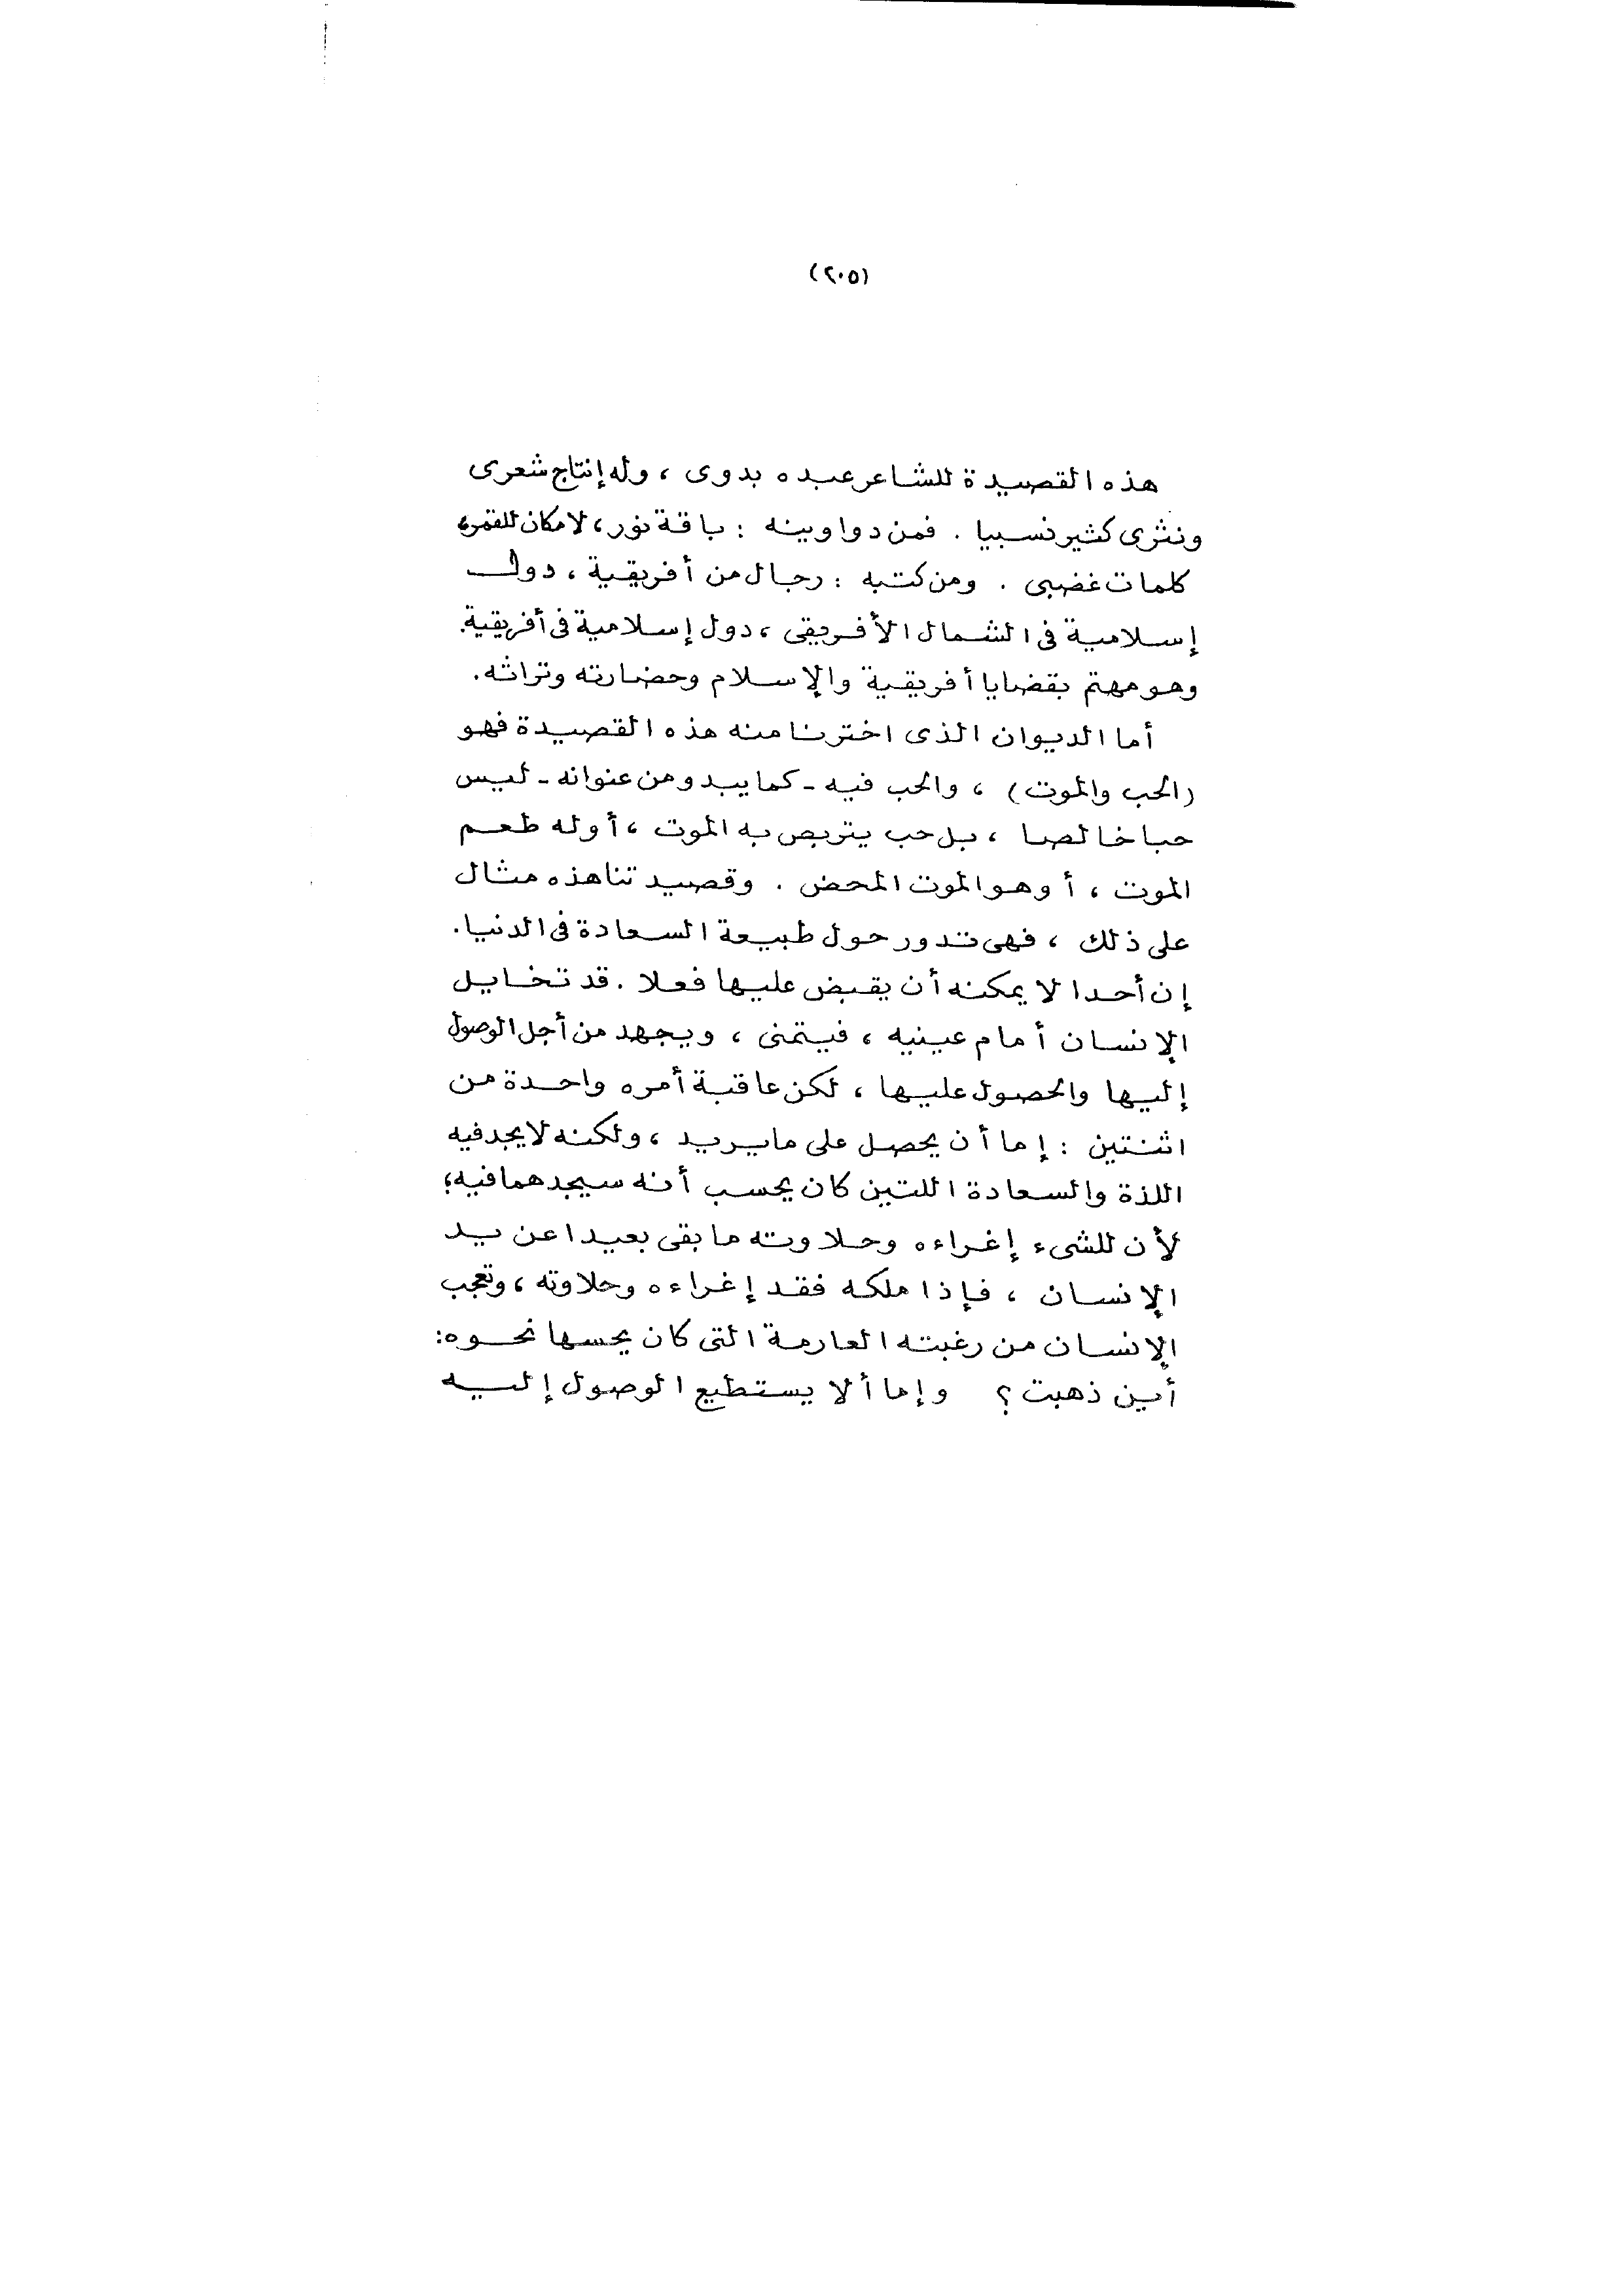 (٢٠٥)
هذه القصيدة للشاعر عبده بدوى ، وله إنتاج شعرى
ونثرى كثير نسبيا . فمن دواوينه : باقة نور ، لا مكان للقمر ،
كلمات غضبى . ومن كتبه : رجال من أفريقية ، دول
إسلامية فى الشمال الأفريقى ، دول إسلامية فى أفريقية .
وهو مهتم بقضايا أفريقية والإسلام وحضارته وتراثه .
أما الديوان الذى اخترنا منه هذه القصيدة فهو
(الحب والموت) ، والحب فيه - كما يبدو من عنوانه - ليس
حبا خالصا ، بل حب يتربص به الموت ، أو له طعم
الموت ، أو هو الموت المحض . وقصيدتنا هذه مثال
على ذلك ، فهى تدور حول طبيعة السعادة فى الدنيا .
إن أحدا لا يمكنه أن يقبض عليها فعلا . قد تخايل
الإنسان أمام عينيه ، فيتمنى ، ويجهد من أجل الوصول
إليها والحصول عليها ، لكن عاقبة أمره واحدة من
اثنتين : إما أن يحصل على ما يريد ، ولكنه لا يجد فيه
اللذة والسعادة اللتين كان يحسب أنه سيجدهما فيه ؛
لأن للشىء إغراءه وحلاوته ما بقى بعيدا عن يد
الإنسان ، فإذا ملكه فقد إغراءه وحلاوته ، وتعجب
الإنسان من رغبته العارمة التى كان يحسها نحوه :
أين ذهبت ؟ وإما ألا يستطيع الوصول إليه